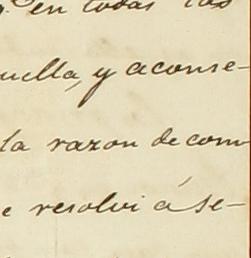 en todas las
uella, y aconse-
la razon de com
e resolvi á se-